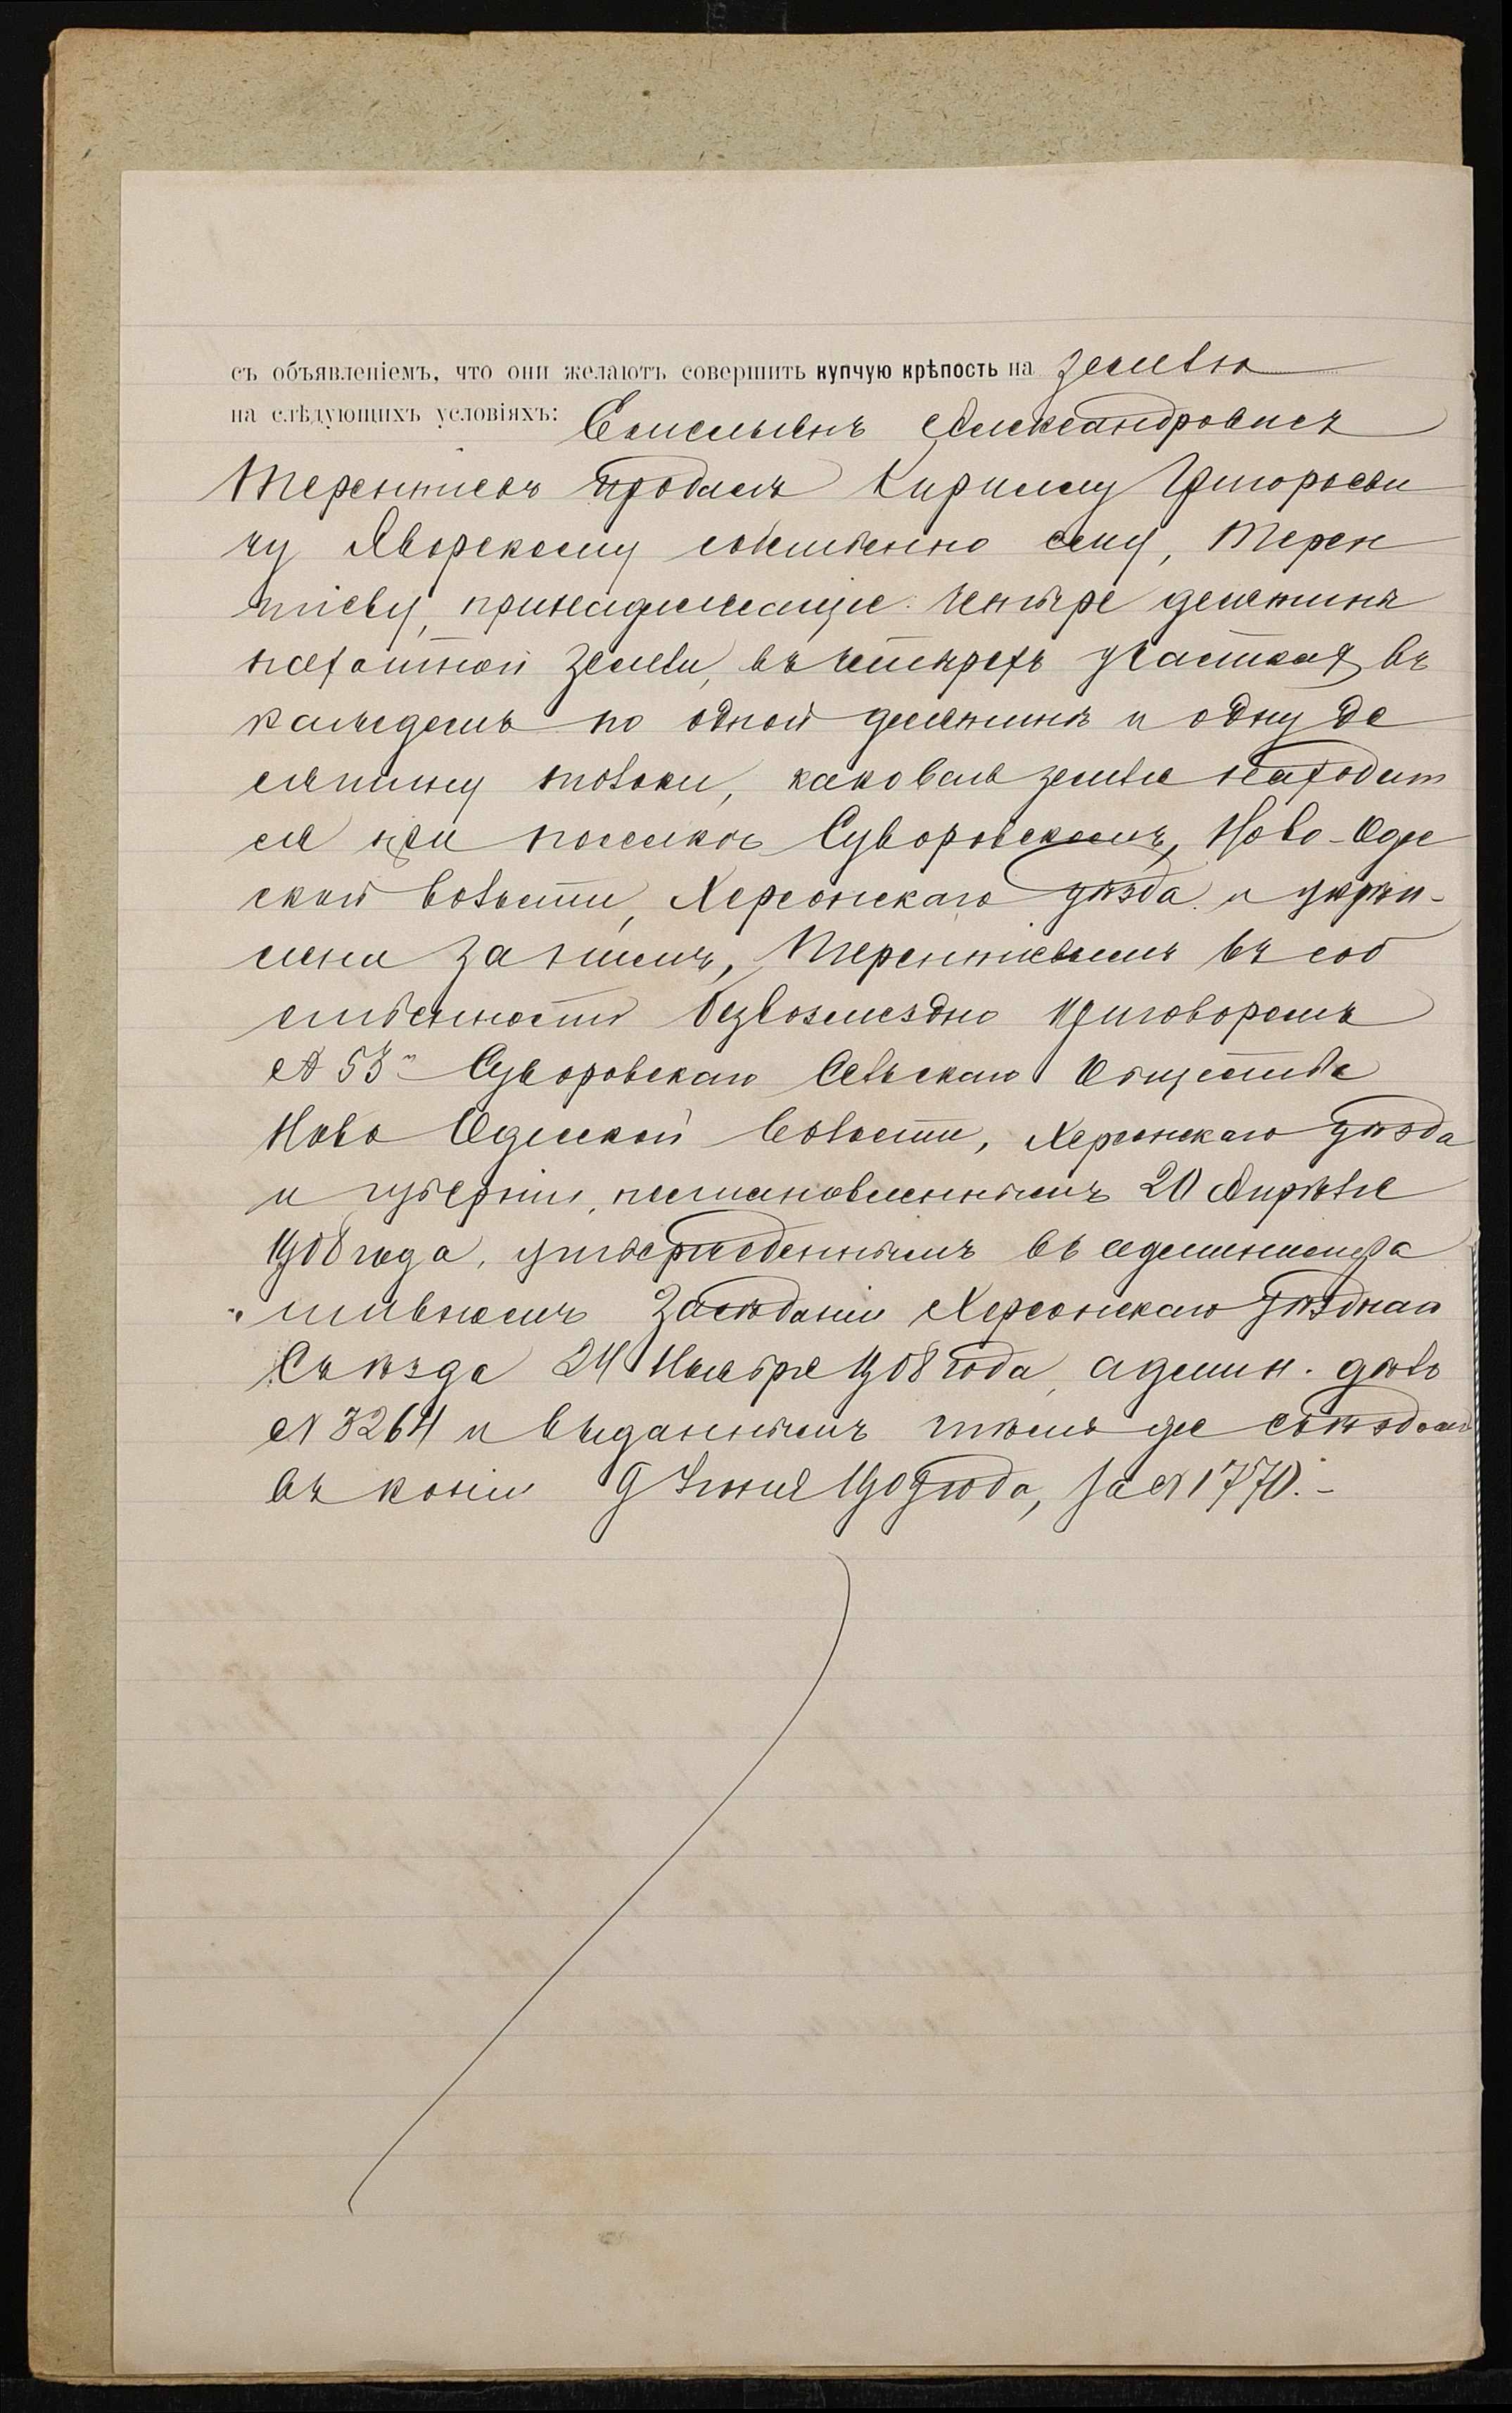 съ объявленіемъ, что они желаютъ совершить купчую крѣпость на землю
на слѣдующихъ условіяхъ: Емельянъ Александровичъ
Терентьевъ продалъ Кириллу Григорьеви
чу Яворскому собственно ему, Терен
тіеву, принадлежащіе четыре десятины
пахатной земли, въ четырехъ участкахъ въ
каждомъ по одной десятинѣ и одну де
сятину толоки, каковая земля находит
ся при поселкѣ Суворовскомъ, Ново-Одес
ской волости, Херсонскаго уѣзда и укрѣп-
лена за нимъ, Терентіевымъ въ соб
ственность безвозмездно приговоромъ
№ 53м Суворовскаго Сельскаго Общества
Ново Одесской волости, Херсонскаго уѣзда
и губерніи, постановленнымъ 20 Апрѣля
1908 года, утвержденнымъ въ администра
тивномъ Засѣданіи Херсонскаго Уѣзднаго
Съѣзда 24 Ноября 1908 года, админ. дѣлъ
№ 3264 и выданнымъ тѣмъ же съѣздомъ
въ копіи 9 Іюня 1909 года, за № 1770.-